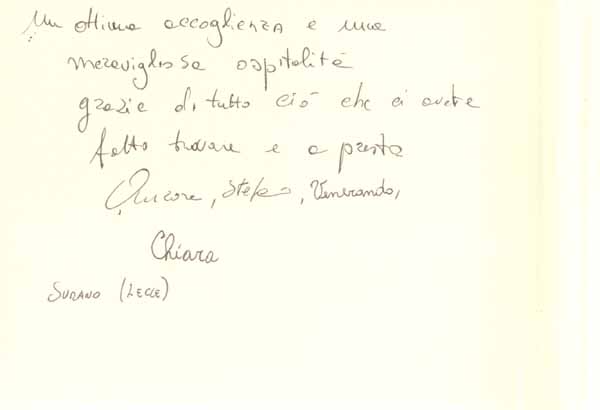 Un ottima accoglienza e una
meravigliosa ospitalità
grazie di tutto ciò che ci avete
fatto trovare e a presto
Stefano, Venerando,
Chiara
SURANO (LECCE)